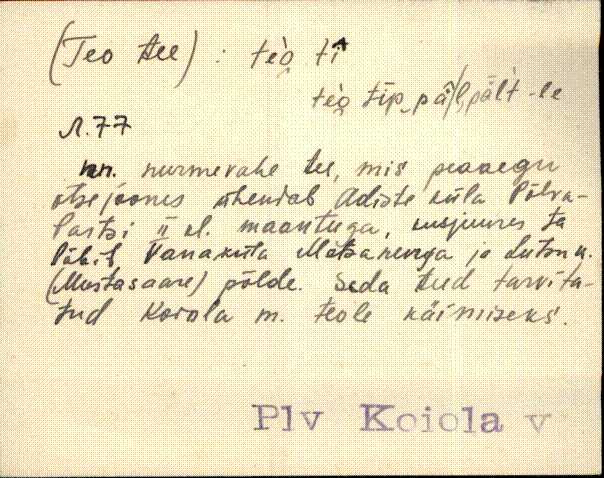 (Teo tee) : tèo̭ tī^
tèo̭ tīp̬ pä̀l, pält -le
Л. 77
nn. nurmevahe tee, mis peaaegu
otsejoones ühendab Adiste küla Põlva-
Partsi II kl. maantega, kusjuures ta
läbib Vanaküla Metsanurga ja
(Mustasaare) põlde. Seda teed tarvita-
tud Koiola m. teole käimiseks.
Plv Koiola v